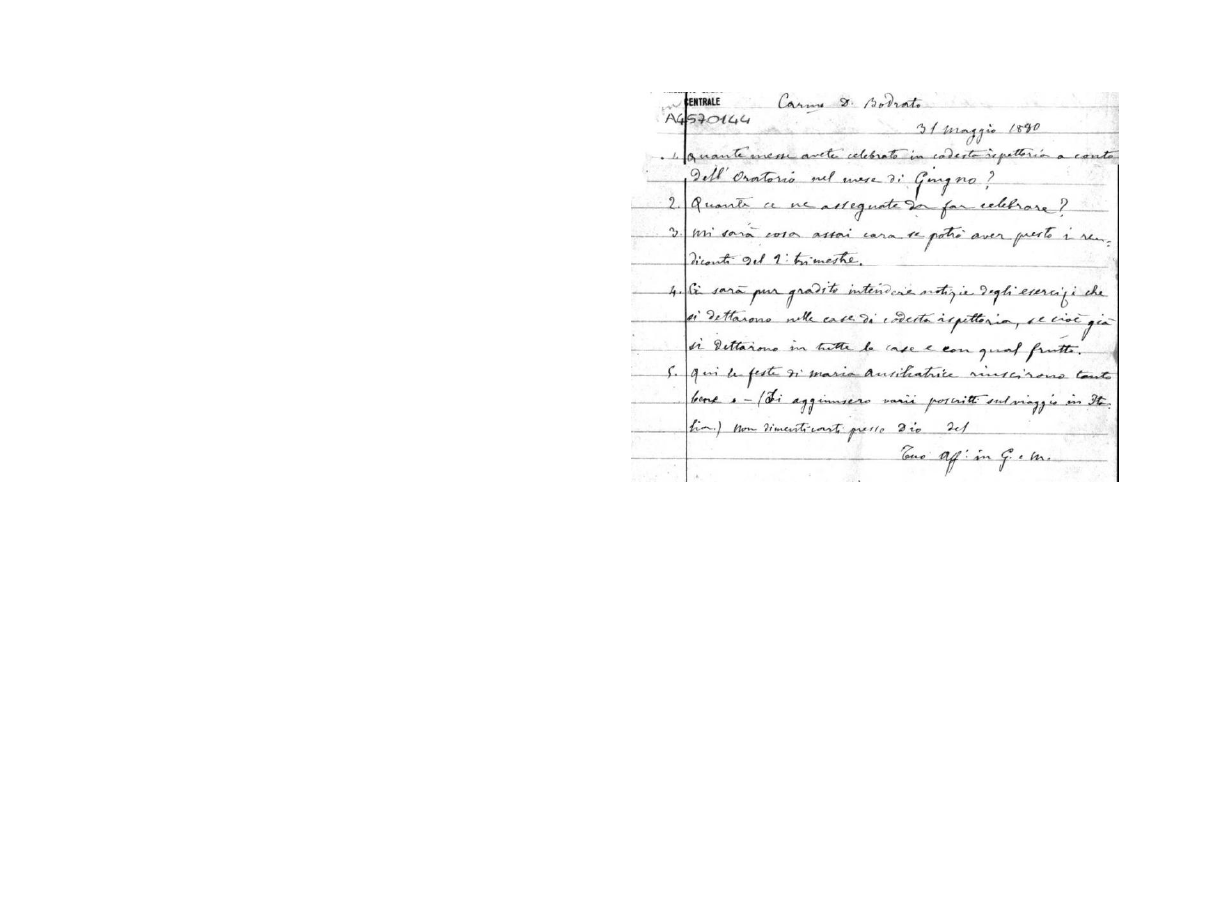 CENTRALE
Carmo D. Bodrato
A4570144
31 Maggio 1880
1. Quante messe avete celebrato in codesta ispettoria a conto
dell'Oratorio nel mese di Giugno?
2. Quante ce ne assegnate da far celebrare?
3. Mi sarà cosa assai cara se potrò aver presto i ren-
diconti del 1º trimestre.
4. Ci sarà pur gradito intendere notizie degli esercizi che
si dettarono nelle case di codesta ispettoria, se cioè già
si dettarono in tutte le case e con qual frutto.
5. Qui le feste di Maria Ausiliatrice riuscirono tanto
bene e - (Si aggiunsero varii poscritti sul viaggio in Ita
lia.) Non dimenticarti presso Dio del
Tuo Aff: in G. e M.